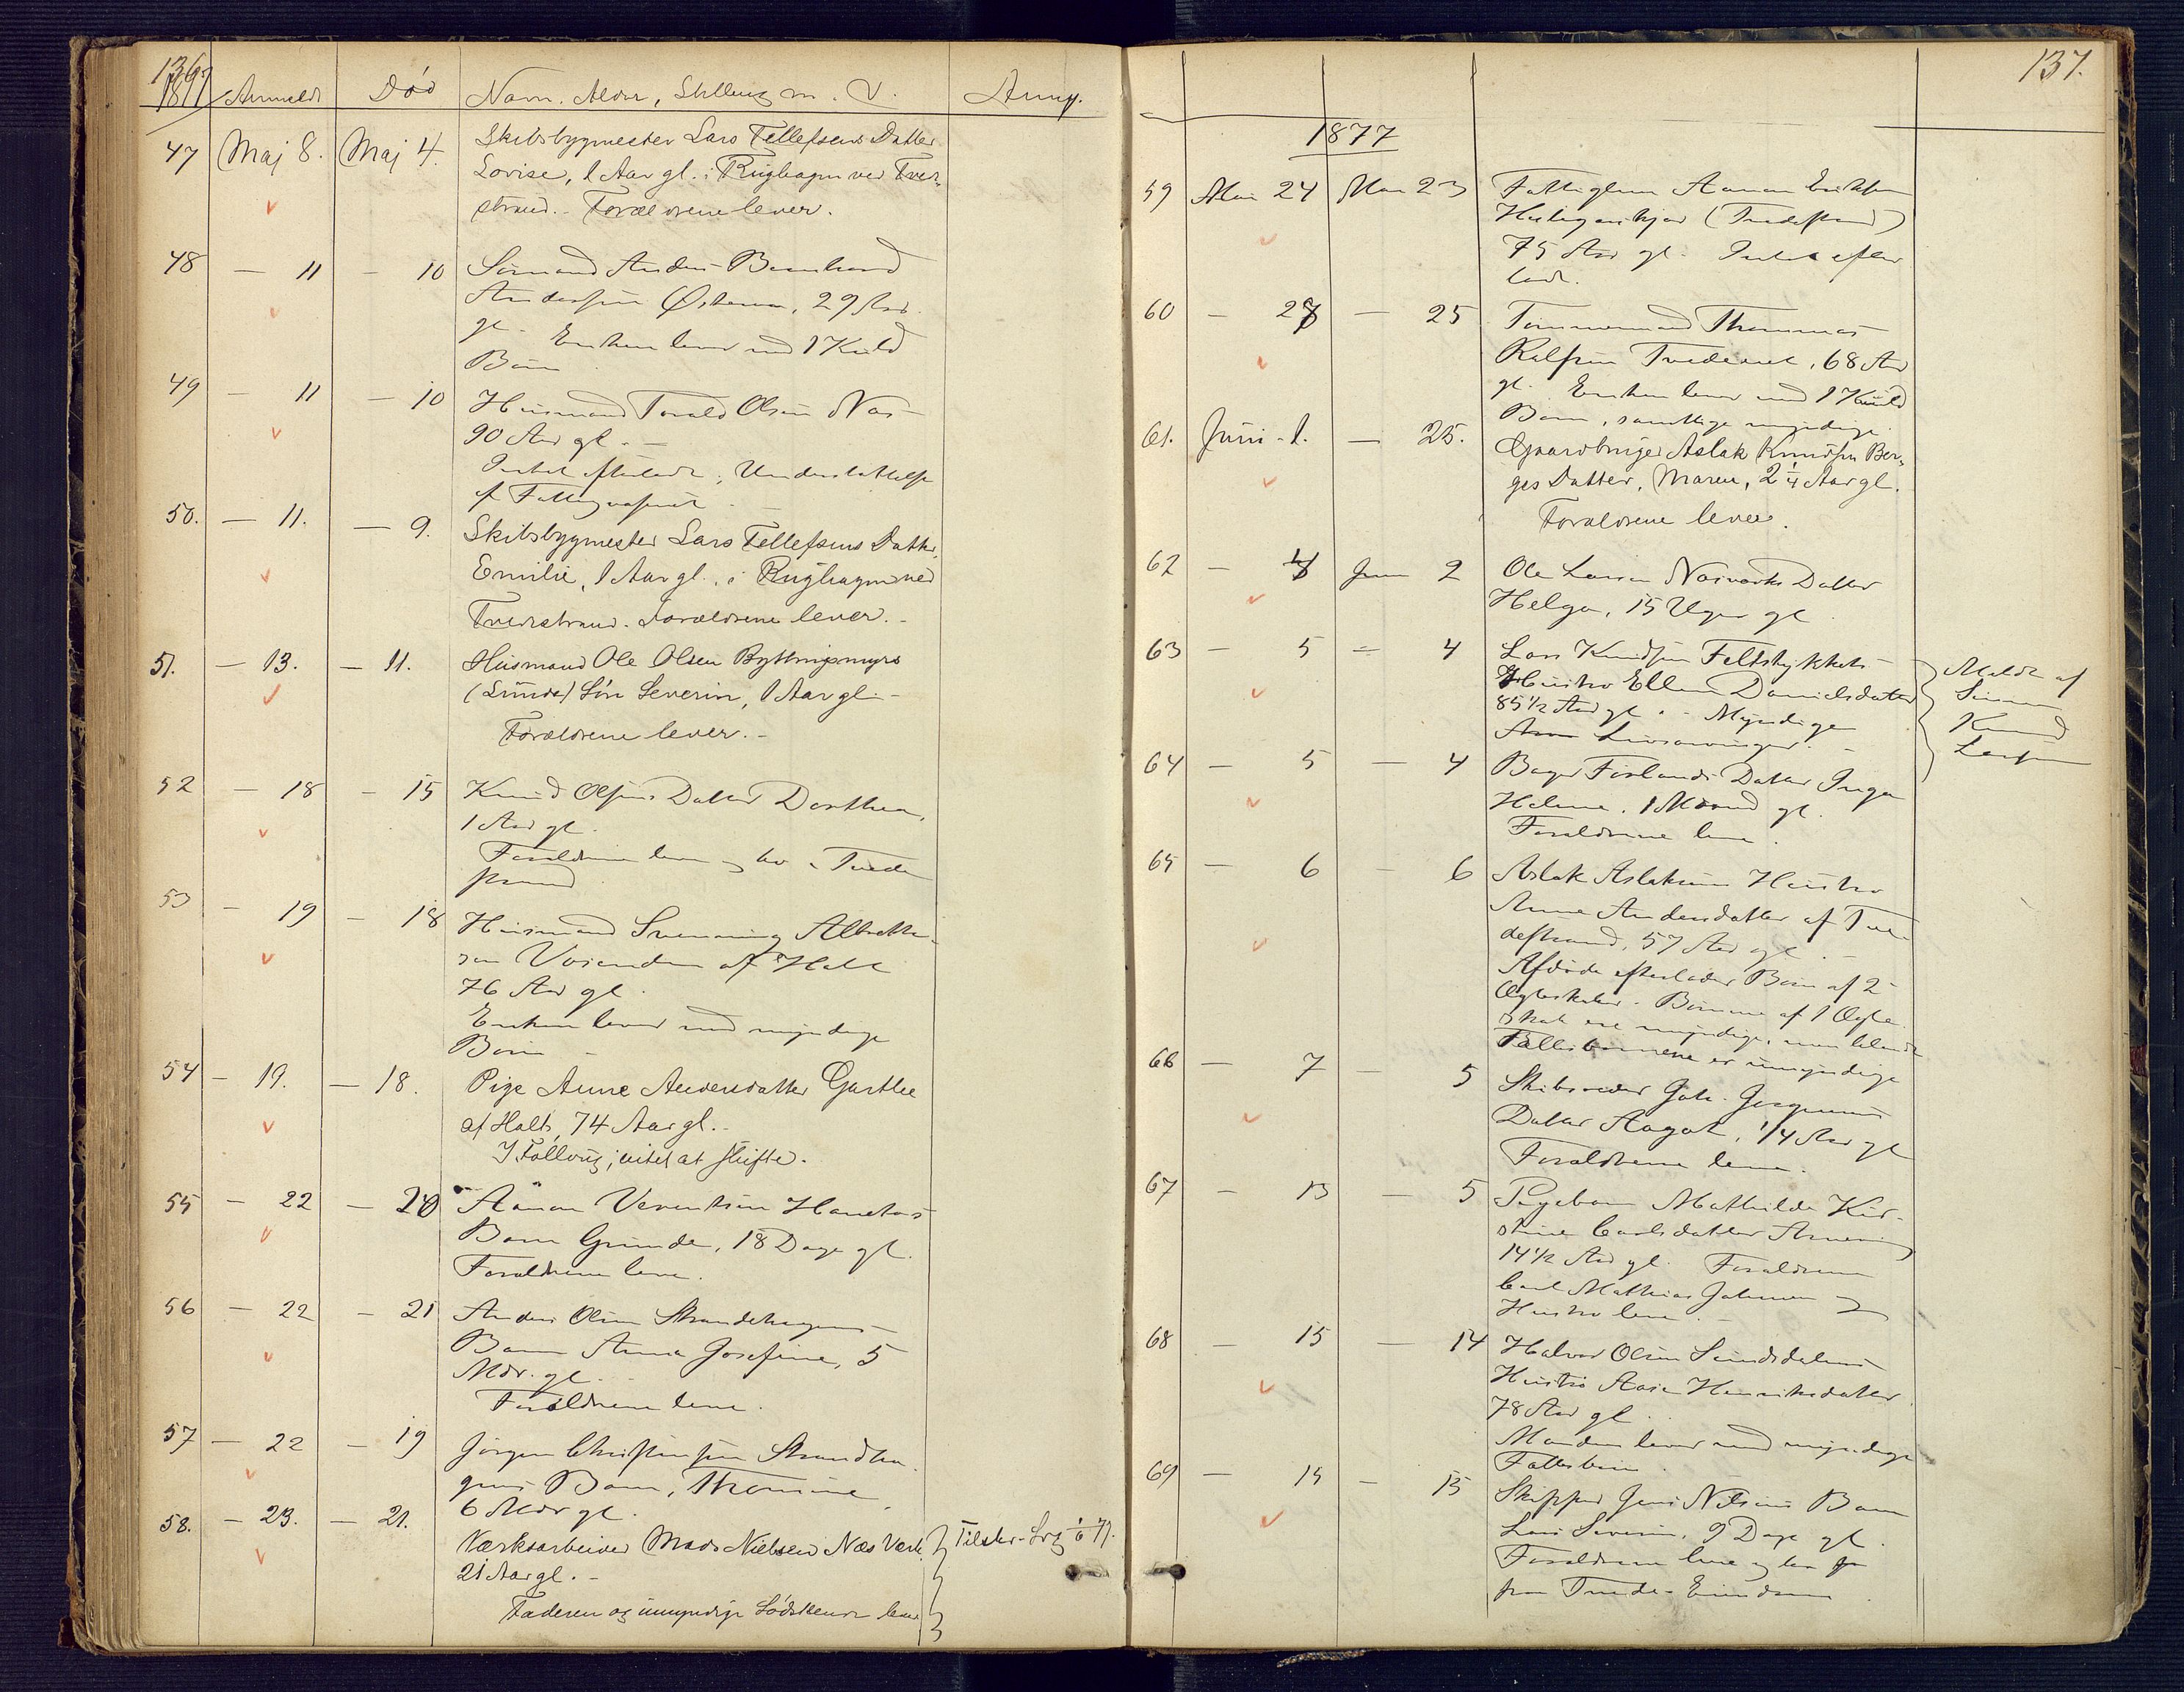 136.
1877 Anmeldt Død Navn. Alder, Stilling m. V. Anm.
47 Maj 8. Maj 4. Skibsbygmester Lars Tellefsens Datter
Lovise, 1 Aar gl. i Rughagen ved Tvede-
strand. - Forældrene lever.
48 — 11 — 10 Sømand Anders Bernhard
Anderssen Østeraa, 29 Aar
gl. Enken lever med 1 Kuld
Børn
49 — 11 — 10 Husmand Torald Olsen Næs
90 Aar gl. —
Intet efterladt; Understøttelse
af Fattigvæsenet
50. — 11. — 9. Skibsbygmester Lars Tellefsens Datter,
Emilie, 1 Aar gl., i Rughagen ved
Tvedestrand. Forældrene lever. -
51. — 13. — 11. Husmand Ole Olsen Byttingsmyrs
(Lunde) Søn Severin, 1 Aar gl. -
Forældrene lever. -
52 — 18 — 15 Knud Olsens Datter Dorthea,
1 Aar gl.
Forældrene leve og bo i Tvede
strand
53 — 19 — 18 Husmand Svenning Albrets-
sen af Holt
76 Aar gl.
Enken lever med myndige
Børn
54 — 19. — 18. Pige Anne Andersdatter Gartlee
af Holt, 74 Aar gl. -
I Follong; intet at skifte.
55 — 22 — 20 Aanon Verentsen
Barn Gunde, 18 Dage gl.
Forældrene leve.
56 — 22 — 21 Anders Olsen Strandehagens
Barn Anna Josefine, 5
Mdr. gl.
Forældrene leve.
57 — 22 — 19 Jørgen Christensen Strandha-
gens Barn, Thomine
6 Mdr gl.
58. — 23. — 21. Værksarbeider Mads Nielsen Næs Værk, Tilskr. Lrg 1/6 77.
21 Aar gl. -
Faderen og umyndige Sødskende lever
137.
1877
59 Mai 24 Mai 23 Fattiglem Aanon Eriksen
(Tvedestrand)
75 Aar gl. Intet efter
ladt.
60 — 28 — 25 Tømmermand Thommas
Ralfsen Tvedenæs, 68 Aar
gl. Enken lever med 1 Kuld
Børn, samtlige myndige.
61. Juni 1. — 25. Gaardbruger Aslak Knudsen Ber-
ges Datter, Maren, 2 1/4 Aar gl.
Forældrene lever.
62 — 4 Juni 2 Ole Larsen Næsværks Datter
Helga, 15 Uger gl
63 — 5 — 4 Lars Knudsen Feltstykkets
Hustro Ellen Danielsdatter
85 1/2 Aar gl. - Myndige
Livsarvinger. -
Meldt af
Sønnen
Knud
Larsen
64 — 5 — 4 Bager Datter Inga
Helene, 1 Maaned gl.
Forældrene leve.
65 — 6 — 6 Aslak Aslaksens Hustro
Anne Andersdatter af Tve-
destrand, 57 Aar gl.
Afdøde efterlader Børn af 2
Ægteskaber. Børnene af 1 Ægte
skab ere myndige, men blandt
Fællesbørnene er umyndige
66 — 7 — 5 Skibsreder Joh. Jørgensens
Datter Aagot, 1/4 Aar gl
Forældrene leve.
67 — 13 — 5 Pigebarn Mathilde Kir-
stine Carlsdatter
14 1/2 Aar gl. Forældrene
Carl Mathias og
Hustro leve. -
68 — 15 — 14 Halvor Olsen Sundsdalens
Hustro Aase Henriksdatter
78 Aar gl.
Manden lever med myndige
Fællesbørn.
69 — 15 — 13 Skipper Jens Nilsens Barn
Lars Severin, 9 Dage gl.
Forældrene leve og bo